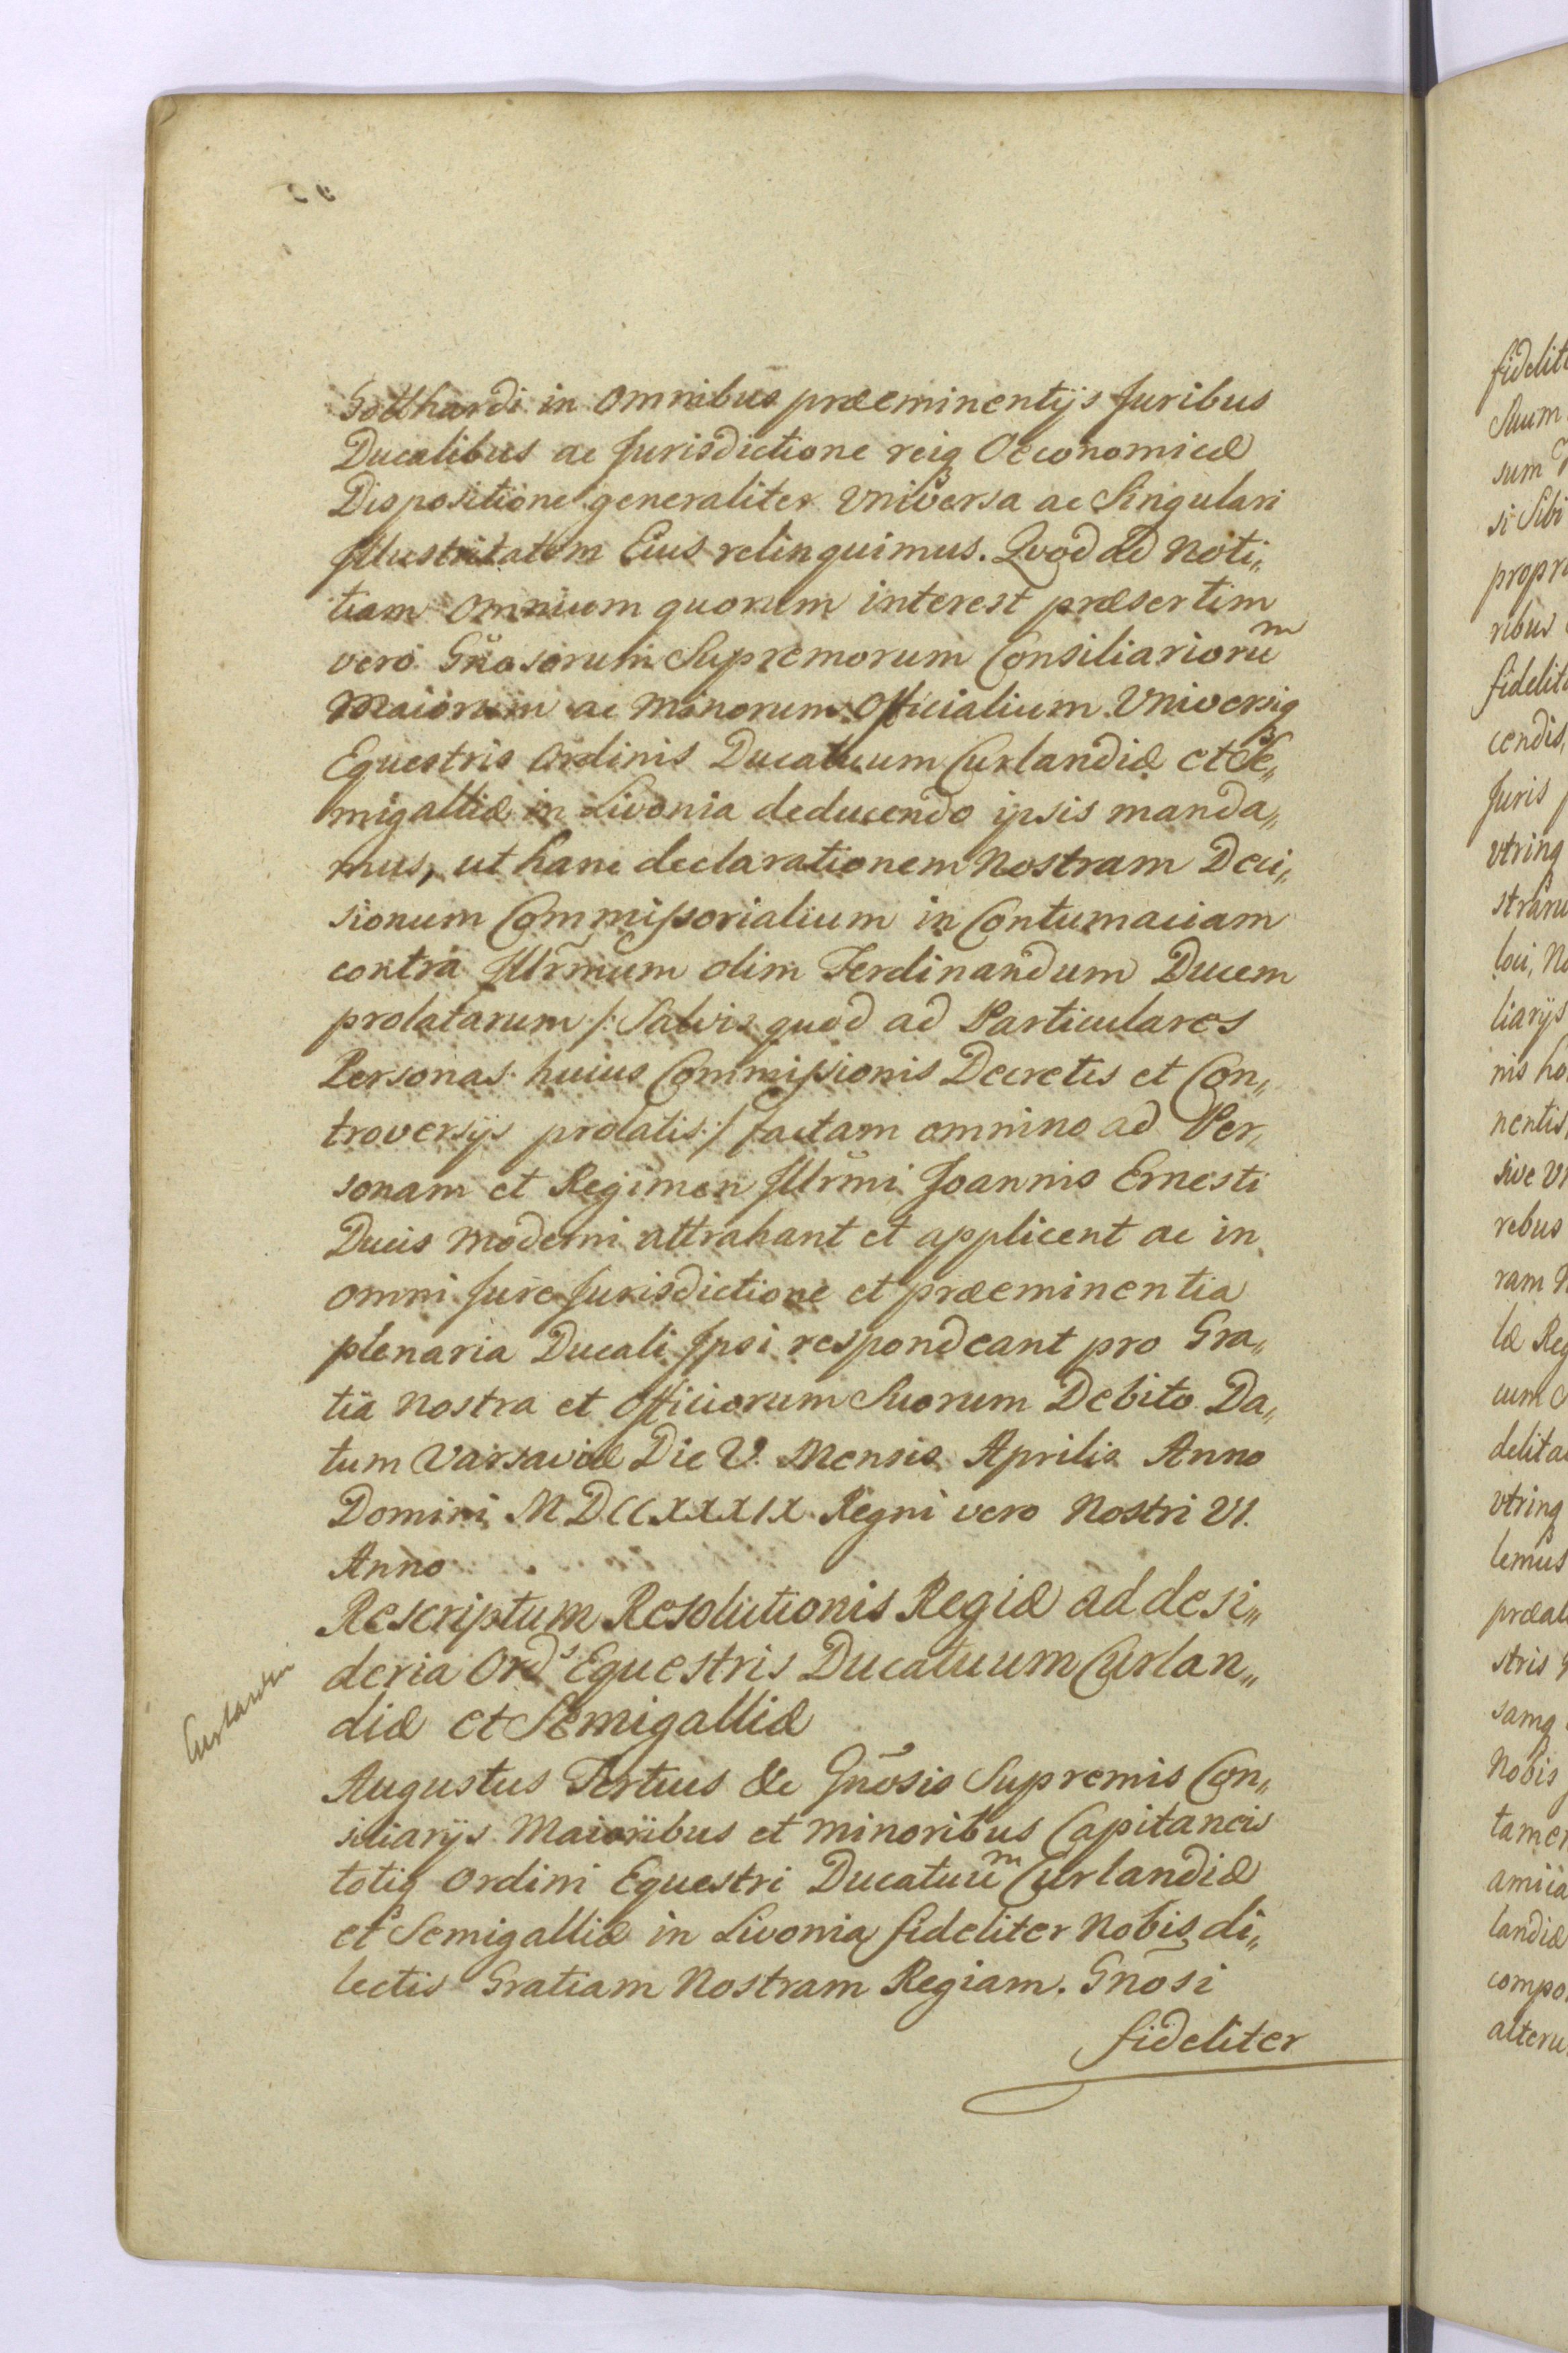 Gotthardi in omnibus præeminentijs Juribus
Ducalibus ac Jurisdictione reiq Oeconomicæ
Dispositione generaliter Universa ac Singulari
Illustritatem Eius relinquimus. Qvod ad Noti„
tiam omnium quorum interest præsertim
vero Gñosorum Supremorum Consiliarioru͞m
Maiorum ac Minorum Officialium Universiq
Equestris Ordinis Ducatuum Curlandiæ et Se„
migalliæ in Livonia deducendo ipsis manda„
mus, ut hanc declarationem Nostram Deci„
sionum Commissorialium in Contumaciam
contra Illrm̃um olim Ferdinandum Ducem
prolatarum /: Salvis quod ad Particulares
Personas huius Commissionis Decretis et Con„
troversijs prolatis :/ factam omnino ad Per„
sonam et Regimen Illrm̃i Joannis Ernesti
Ducis Moderni attrahant et applicent ac in
omni Jure Jurisdictione et præeminentia
plenaria Ducali Ipsi respondeant pro Gra„
tia Nostra et Officiorum Suorum Debito. Da„
tum Varsaviæ Die V. Mensis Aprilis Anno
Domini MDCCXXXIX Regni vero Nostri VI.
Anno
Rescriptum Resolutionis Regiæ ad desi„
deria Ord^s Equestris Ducatuum Curlan„
diæ et Semigalliæ
Augustus Tertius &c Gñosis Supremis Con„
siliarijs Maioribus et minoribus Capitaneis
totiq Ordini Equestri Ducatuu͞m Curlandiæ
et Semigalliæ in Livonia fideliter Nobis di„
lectis Gratiam Nostram Regiam. Gñosi
fideliter
fidelit
Suum
sum
si Sibi
propri
ribus
fidelit
cendis,
Juris
vtrinq
stram
loci, No
liarijs
nis ho
nentis,
sive
rebus
ram
tæ Reg
cum
delita
vtrinq
lemus
præal
stris
samq
Nobis
tamen
amica
landiæ
compo
alteru